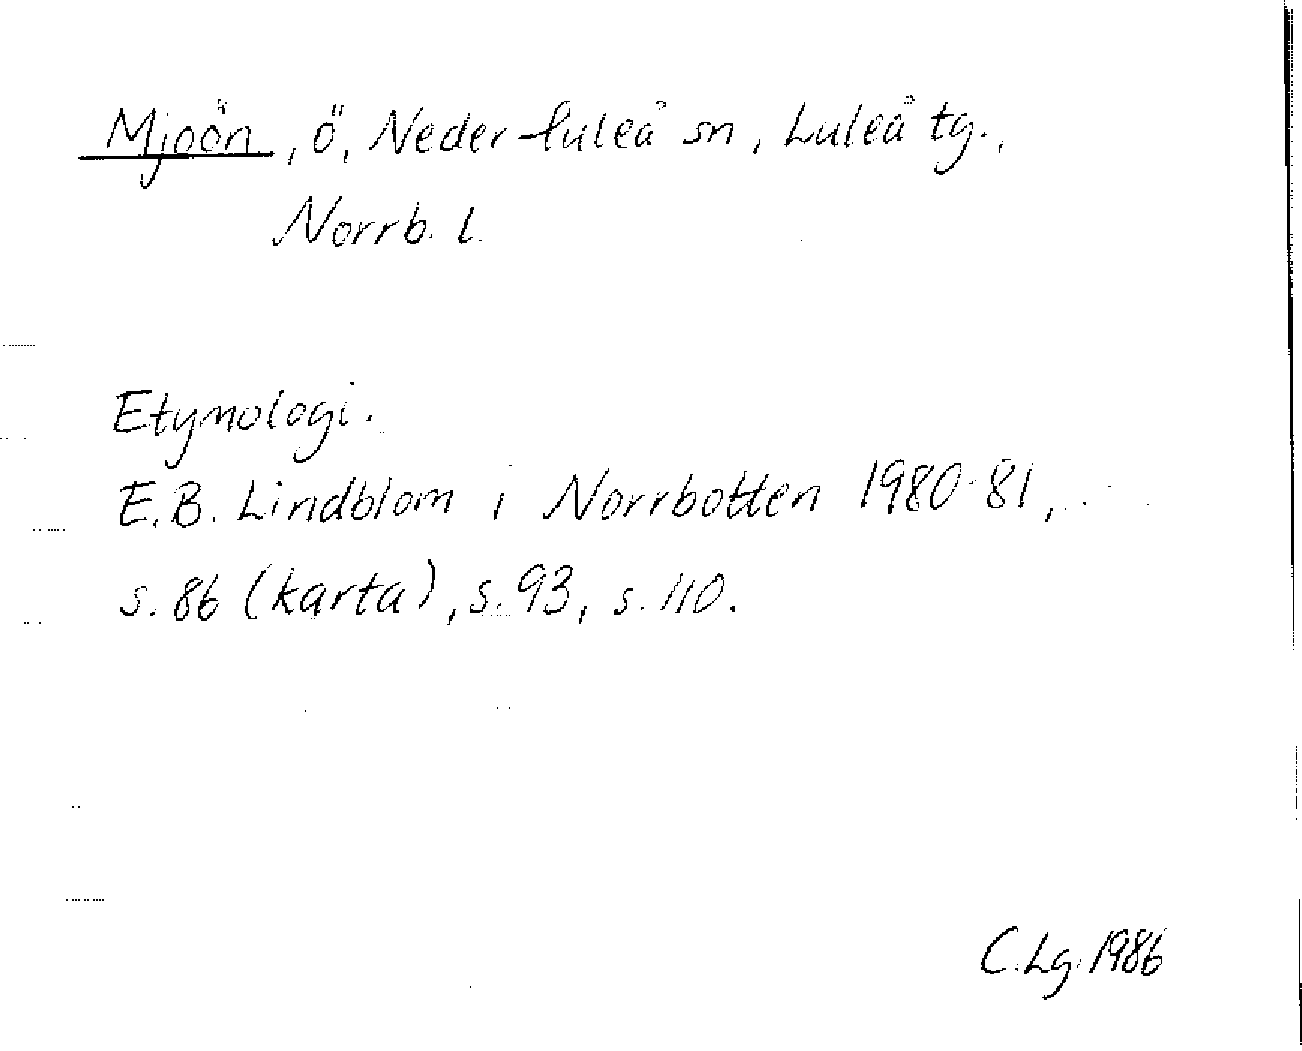 Mjoön, ö, Neder-luleå sn, Luleå tg.,
Norrb. l.
Etymologi.
E.B. Lindblom i Norrbotten 1980-81,
s. 86 (karta), s. 93, s. 110.
C.Lg. 1986